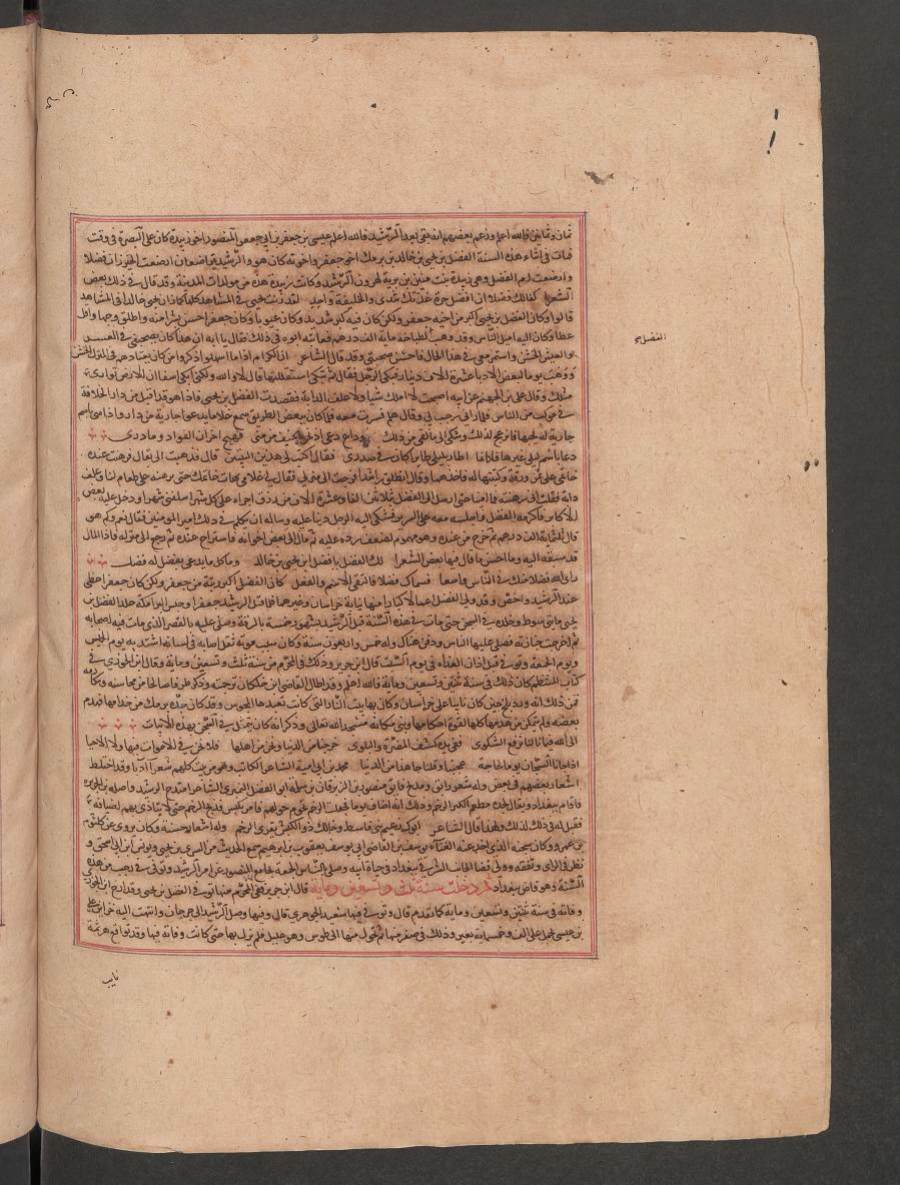 ثمان وثمانين فالله اعلم وزعم بعضهم انه بقي بعد الرشيد فالله اعلم عيسى بن جعفر بن ابي جعفر المنصور اخو زبيدة كان على البصرة في وقت
فمات في اثناء هذه السنة الفضل بن يحيى بن خالد بن برمك اخو جعفر واخوته كان هو والرشيد يتراضعان ارضعت الخيزران فضلا
وارضعت ام الفضل وهي زبيدة بنت منين بن بريه لهرون الرشيد وكانت زبيدة هذه من مولدات المدينة وقد قال في ذلك بعض
الشعرا كفى لك فضلا ان افضل حرة غذتك بثدي والخليفة واحد لقد زنت يحيى في المشاهد كلها كما زان يحيى خالدا في المشاهد
قالوا وكان الفضل بن يحيى اكبر من اخيه جعفر ولكن كان فيه كبر شديد وكان عبوسا وكان جعفر احسن بشرا منه واطلق وجها واقل
عطا وكان اليه اميل الناس وقد وهب لطباخه ماية الف درهم فعاتبه ابوه في ذلك فقال يا ابه ان هذا كان يصحبني في العسر
والعيش الخشن واستمر معي في هذا الحال فاحسن صحبتي وقد قال الشاعر ان الكرام اذا ما اسهلوا ذكروا من كان يعتادهم في المنزل الخشن
ووهب يوما لبعض الادبا عشرة الاف دينار فبكى الرجل فقال له مم تبكي استقللتها قال لا والله ولكني ابكي اسفا ان الارض تواري
مثلك وقال علي بن الجهم عن ابيه اصبحت لا املك شيا ولا علف الدابة فقصدت الفضل بن يحيى فاذا هو قد اقبل من دار الخلافة
في موكب من الناس فلما راني رحب بي وقال هلم فسرت معه فلما كان ببعض الطريق سمع غلاما يدعوا جارية من دار واذا هي باسم
جارية له يحبها فانزعج لذلك وشكى الي ما لقي من ذلك وداع دعى اذ نحن بالخيف من منى فهيج احزان الفواد وما يدري
دعا باسم ليلى غيرها فكانما اطار بليلى طايرا كان في صدري فقال اكتب لي هذين البيتين قال فذهبت الى بقال فرهنت عنده
خاتمي على ثمن ورقة وكتبتها له فاخذهما وقال انطلق راشدا فرجعت الى منزلي فقال لي غلامي هات خاتمك حتى نرهنه على طعام لنا وعلف
دابة فقلت اني رهنته فما امسينا حتى ارسل الي الفضل ثلاثين الفا وعشرة الاف من رزق اجراه علي كل شهر اسلفني شهرا ودخل عليه بعض
الاكابر فاكرمه الفضل واجلسه معه على السرير فشكى اليه الرجل دينا عليه وساله ان يكلم في ذلك امير المومنين فقال نعم وكم هو
قال ثلثماية الف درهم ثم خرج من عنده وهو مهموم لضعف رده عليه ثم مال الى بعض اخوانه فاستراح عنده ثم رجع الى منزله فاذا المال
قد سبقه اليه وما احسن ما قال فيها بعض الشعرا لك الفضل يا فضل ابن يحيى بن خالد وما كل ما يدعى بفضل له فضل
راى الله فضلا منك في الناس واسعا فسماك فضلا فالتقى الاسم والفعل كان الفضل اكبر رتبة من جعفر ولكن كان جعفر احظى
عند الرشيد واخص وقد ولي الفضل اعمالا كبارا منها نيابة خراسان وغيرها فلما قتل الرشيد جعفرا وحبس البرامكة جلد الفضل بن
يحيى مايتي سوط وخلده في السجن حتى مات في هذه السنة قبل الرشيد بشهور خمسة بالرقة وصلى عليه بالقصر الذي مات فيه اصحابه
ثم اخرجت جنازته فصلى عليها الناس ودفن هناك وله خمس واربعون سنة وكان سبب موته ثقل اصابه في لسانه اشتد به يوم الخميس
ويوم الجمعة وتوفي قبل اذان الغداة في يوم السبت قال ابن جرير وذلك في المحرم من سنة ثلث وتسعين وماية وقال ابن الجوزي في
كتاب المنتظم كان ذلك في سنة ثنتين وتسعين وماية فالله اعلم وقد اطال القاضي ابن خلكان ترجمته وذكر طرفا صالحا من محاسنه ومكارمه
فمن ذلك انه ورد بلخ حين كان نايبا على خراسان وكان بها بيت النار التي كانت تعبدها المجوس وقد كان جده برمك من خدامها فهدم
بعضه ولم يتمكن من هدمها كلها لقوة احكامها وبنى مكانه مسجدا لله تعالى وذكر انه كان يتمثل في السجن بهذه الابيات
الى الله فيما نالنا نرفع الشكوى ففي يده كشف المضرة والبلوى خرجنا من الدنيا ونحن من اهلها فلا نحن في الاموات فيها ولا الاحيا
اذا جانا السجان يوما لحاجة عجبنا وقلنا جا هذا من الدنيا محمد بن ابي امية الشاعر الكاتب وهو من بيت كلهم شعرا ادبا وقد اختلط
اشعار بعضهم في بعض وله شعر رايق ومديح فايق منصور بن الزبرقان بن سلمة ابو الفضل النميري الشاعر امتدح الرشيد واصله من الجزيرة
فاقام ببغداد ويقال لجده مطعم الكبش الرخم وذلك انه اضاف يوما فجعلت الرخم تحوم حولهم فامر بكبش فذبح للرخم حتى لا يتاذى بهم اضيافه
فقيل له في ذلك لذلك ولهذا قال الشاعر ابوك زعيم بني قاسط وخالك ذو الكبش يقري الرخم وله اشعار حسنة وكان يروي عن كلثوم
بن عمرو وكان شيخه الذي اخذ عنه الغناء يوسف بن القاضي ابي يوسف يعقوب بن ابراهيم سمع الحديث من السري بن يحيى ويونس ابن ابي اسحق و
نظر في الراي وتفقه وولي قضا الجانب الشرقي ببغداد في حياة ابيه وصلى بالناس الجمعة بجامع المنصور عن امر الرشيد وتوفي في رجب من هذه
السنة وهو قاض ببغداد ثم دخلت سنة ثلث وتسعين وماية قال ابن جرير في المحرم منها توفي الفضل بن يحيى وقد ارخ ابن الجوزي
وفاته في سنة ثنتين وتسعين وماية كما تقدم قال وتوفي فيها سعيد الجوهري قال وفيها وصل الرشيد الى جرجان وانتهت اليه خزاين علي
بن عيسى تحمل على الف وخمسماية بعير وذلك في صفر منها ثم تحول منها الى طوس وهو عليل فلم يزل بها حتى كانت وفاته فيها وقد تواقع هرثمة
نايب